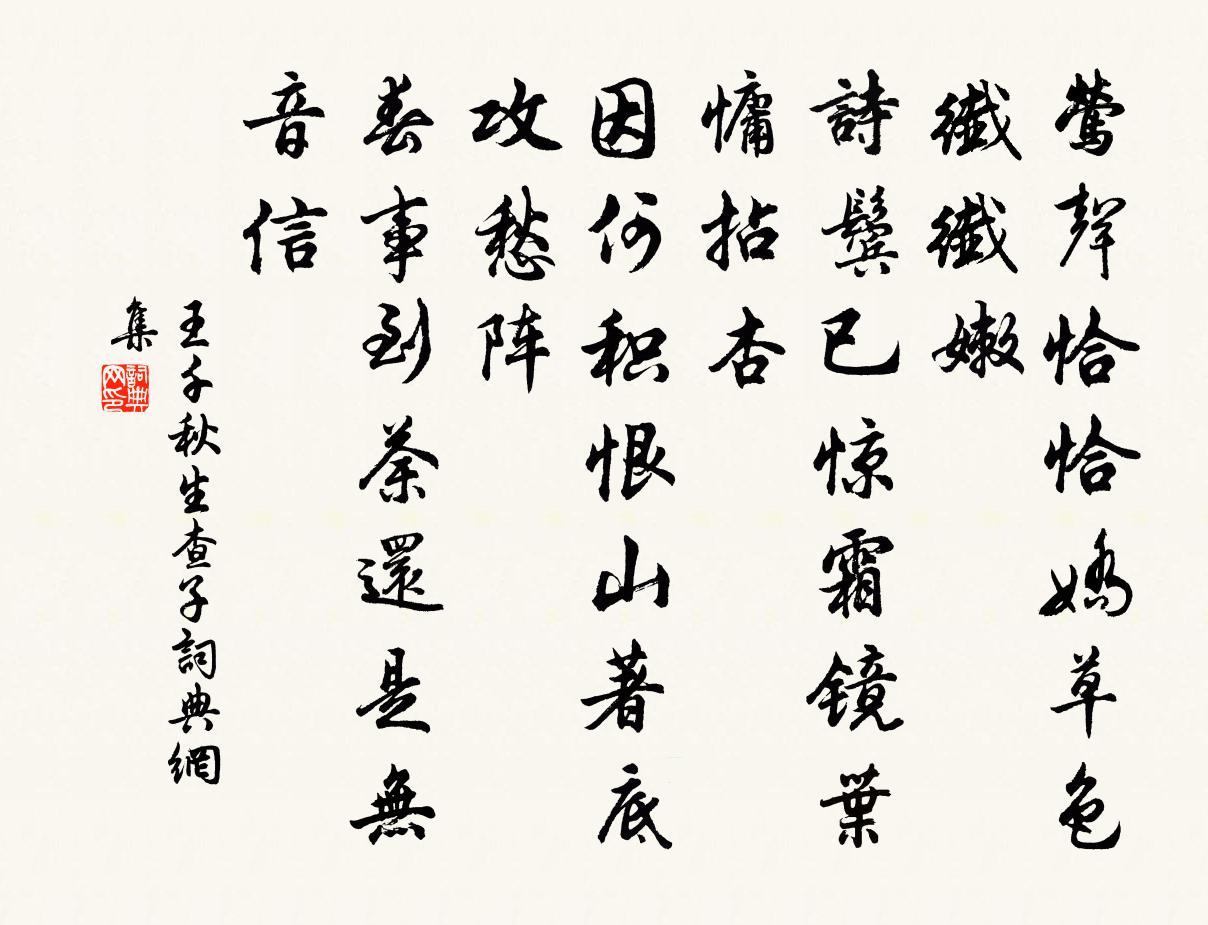 莺聲恰恰嬌草色
纖纖嫩
詩鬓已惊霜镜葉
慵拈杏
因何积恨山著底
攻愁阵
春事到荼還是無
音信
王千秋生查子詞典網
集
詞典网印